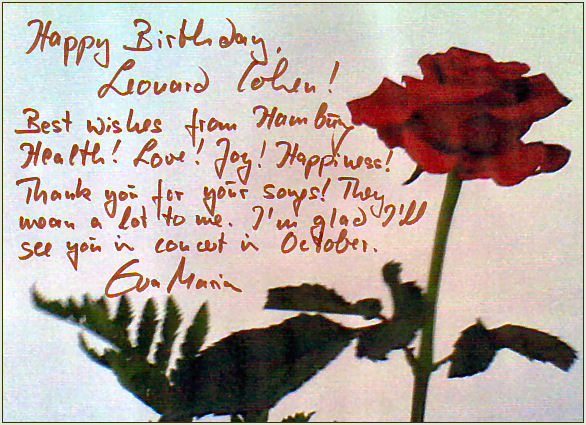 Happy Birthday,
Leonard Cohen!
Best wishes from Hamburg
Health! Love! Joy! Happiness!
Thank you for your songs! They
mean a lot to me. I'm glad I'll
see you in concert in October.
Eva Maria